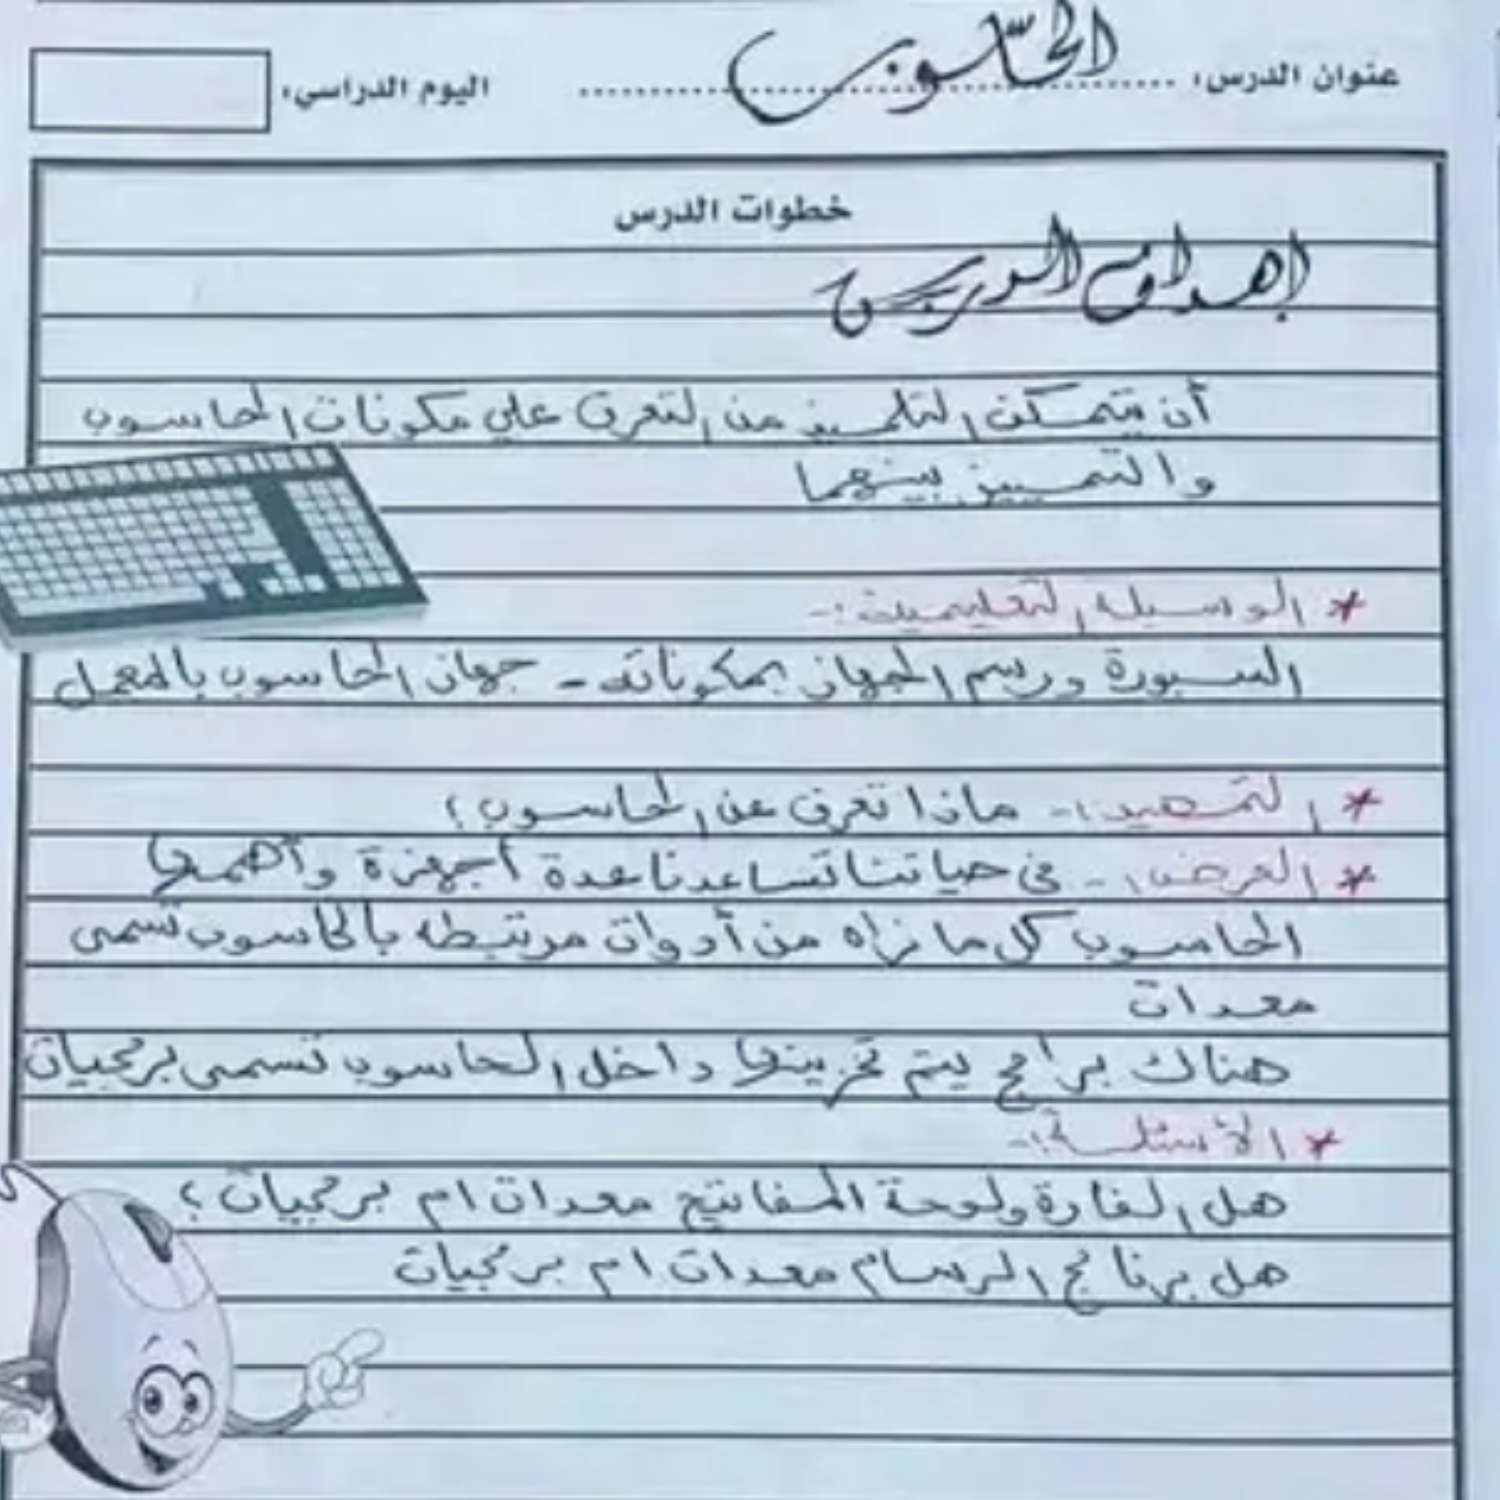 عنوان الدرس: الحاسوب
اليوم الدراسي:
خطوات الدرس
اهداف الدرس
أن يتمكن التلميذ من التعرف علي مكونات الحاسوب
والتمييز بينهما
* الوسيلة التعليمية:-
السبورة ورسم الجهاز بمكوناته - جهاز الحاسوب بالمعمل
* التمهيد:- ماذا تعرف عن الحاسوب؟
* العرض:- في حياتنا تساعدنا عدة أجهزة وأهمها
الحاسوب كل ما نراه من أدوات مرتبطه بالحاسوب تسمى
معدات
هناك برامج يتم تخزينها داخل الحاسوب تسمى برمجيات
* الأسئلة:-
هل الفارة ولوحة المفاتيح معدات ام برمجيات؟
هل برنامج الرسام معدات ام برمجيات